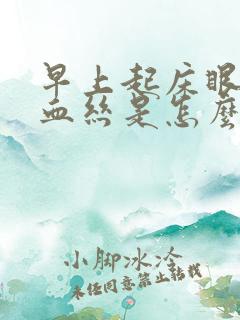 早上起床眼
血丝是怎麽
小脚冰冷
未经同意禁止转载